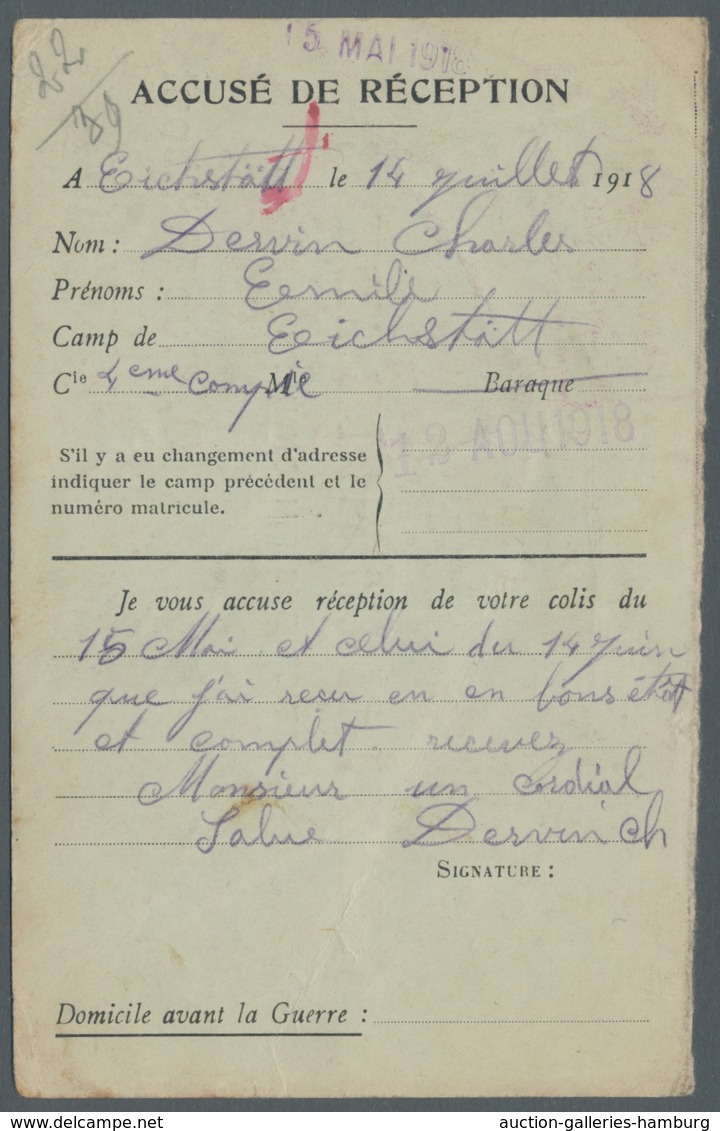 15 MAI 1918
22
39
ACCUSÉ DE RÉCEPTION
A Eichstätt le 14 juillet 1918
Nom : Dervin Charles
Prénoms : Eemile
Camp de Eeichstätt
Cie 4eme Compie Mle Baraque
S'il y a eu changement d'adresse
indiquer le camp précédent et le
numéro matricule.
13 AOU 1918
Je vous accuse réception de votre colis du
15 Mai et celui du 14 juin
que j'ai recu en en bons étàtt
et complet. recevez
Monsieur un cordial
Salue Dervin Ch
SIGNATURE :
Domicile avant la Guerre :
auction-galleries-hamburg